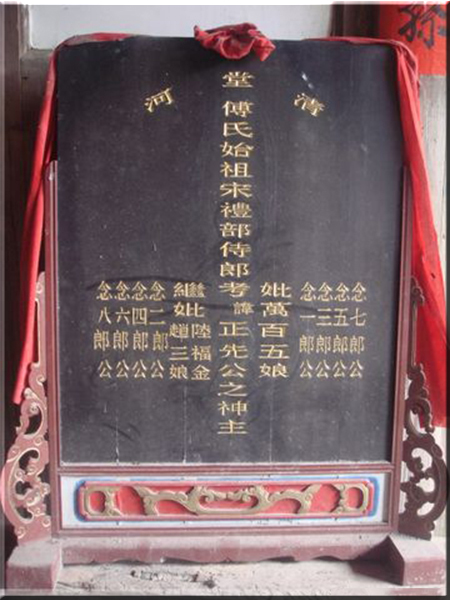 清河堂
傅氏始祖宋禮部侍郎考諱正先公之神主
念七郎公
念五郎公
念三郎公
念一郎公
妣萬百五娘
繼妣陸福金
趙三娘
念二郎公
念四郎公
念六郎公
念八郎公